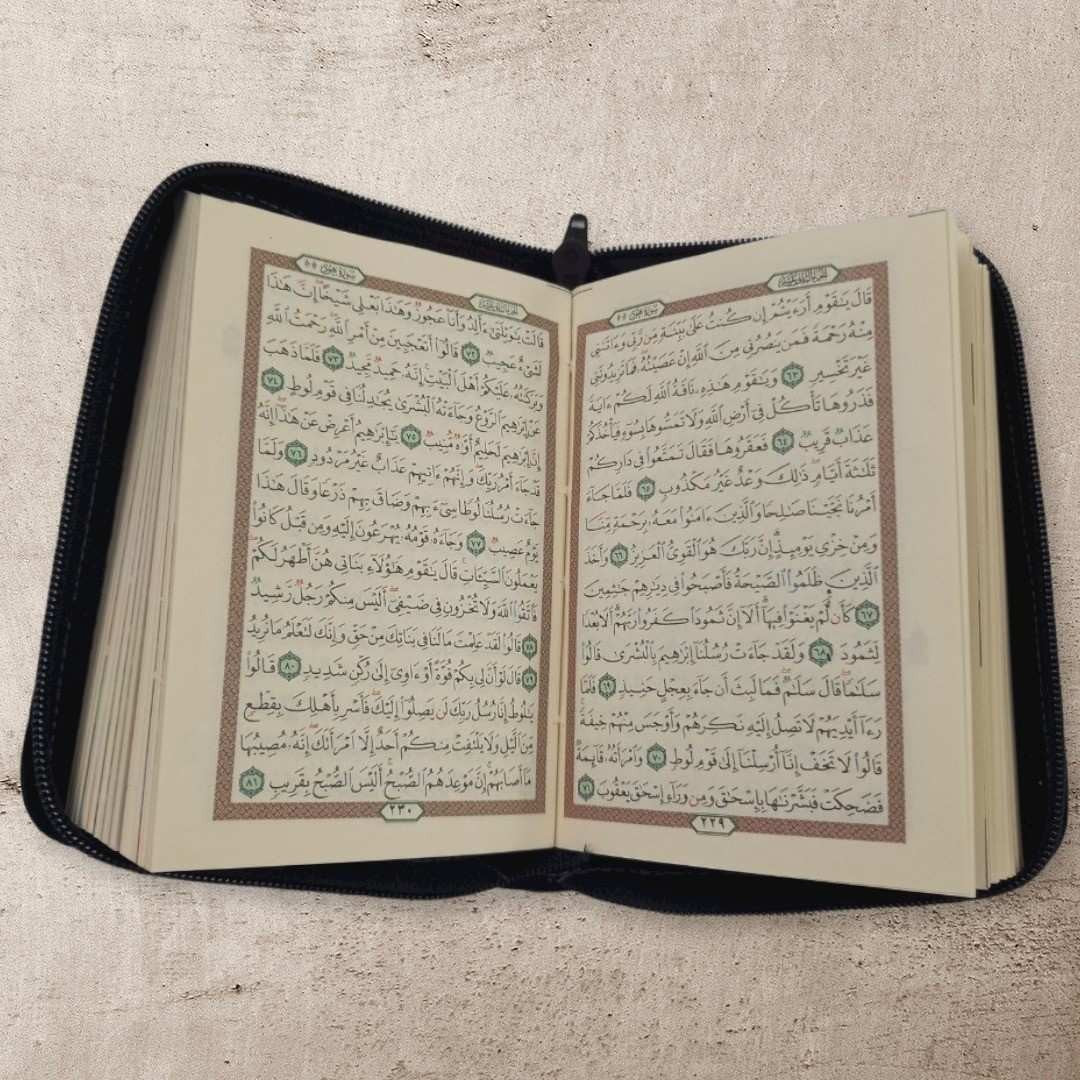 الجزء الثاني عشر
سورة هود
قَالَ يَٰقَوْمِ أَرَءَيْتُمْ إِن كُنتُ عَلَىٰ بَيِّنَةٍ مِّن رَّبِّي وَءَاتَىٰنِي
مِنْهُ رَحْمَةً فَمَن يَنصُرُنِي مِنَ ٱللَّهِ إِنْ عَصَيْتُهُۥ فَمَا تَزِيدُونَنِي
غَيْرَ تَخْسِيرٍ ٦٣ وَيَٰقَوْمِ هَٰذِهِۦ نَاقَةُ ٱللَّهِ لَكُمْ ءَايَةً
فَذَرُوهَا تَأْكُلْ فِيٓ أَرْضِ ٱللَّهِ وَلَا تَمَسُّوهَا بِسُوٓءٍ فَيَأْخُذَكُمْ
عَذَابٌ قَرِيبٌ ٦٤ فَعَقَرُوهَا فَقَالَ تَمَتَّعُوا۟ فِي دَارِكُمْ
ثَلَٰثَةَ أَيَّامٍ ۖ ذَٰلِكَ وَعْدٌ غَيْرُ مَكْذُوبٍ ٦٥ فَلَمَّا جَآءَ
أَمْرُنَا نَجَّيْنَا صَٰلِحًا وَٱلَّذِينَ ءَامَنُوا۟ مَعَهُۥ بِرَحْمَةٍ مِّنَّا
وَمِنْ خِزْيِ يَوْمِئِذٍ ۗ إِنَّ رَبَّكَ هُوَ ٱلْقَوِيُّ ٱلْعَزِيزُ ٦٦ وَأَخَذَ
ٱلَّذِينَ ظَلَمُوا۟ ٱلصَّيْحَةُ فَأَصْبَحُوا۟ فِي دِيَٰرِهِمْ جَٰثِمِينَ
٦٧ كَأَن لَّمْ يَغْنَوْا۟ فِيهَآ ۗ أَلَآ إِنَّ ثَمُودَا۟ كَفَرُوا۟ رَبَّهُمْ ۗ أَلَا بُعْدًا
لِّثَمُودَ ٦٨ وَلَقَدْ جَآءَتْ رُسُلُنَآ إِبْرَٰهِيمَ بِٱلْبُشْرَىٰ قَالُوا۟
سَلَٰمًا ۖ قَالَ سَلَٰمٌ ۖ فَمَا لَبِثَ أَن جَآءَ بِعِجْلٍ حَنِيذٍ ٦٩ فَلَمَّا
رَءَآ أَيْدِيَهُمْ لَا تَصِلُ إِلَيْهِ نَكِرَهُمْ وَأَوْجَسَ مِنْهُمْ خِيفَةً ۚ
قَالُوا۟ لَا تَخَفْ إِنَّآ أُرْسِلْنَآ إِلَىٰ قَوْمِ لُوطٍ ٧٠ وَٱمْرَأَتُهُۥ قَآئِمَةٌ
فَضَحِكَتْ فَبَشَّرْنَٰهَا بِإِسْحَٰقَ وَمِن وَرَآءِ إِسْحَٰقَ يَعْقُوبَ ٧١
٢٢٩
الجزء الثاني عشر
سورة هود
قَالَتْ يَٰوَيْلَتَىٰٓ ءَأَلِدُ وَأَنَا۠ عَجُوزٌ وَهَٰذَا بَعْلِي شَيْخًا ۖ إِنَّ هَٰذَا
لَشَيْءٌ عَجِيبٌ ٧٢ قَالُوٓا۟ أَتَعْجَبِينَ مِنْ أَمْرِ ٱللَّهِ ۖ رَحْمَتُ ٱللَّهِ
وَبَرَكَٰتُهُۥ عَلَيْكُمْ أَهْلَ ٱلْبَيْتِ ۚ إِنَّهُۥ حَمِيدٌ مَّجِيدٌ ٧٣ فَلَمَّا ذَهَبَ
عَنْ إِبْرَٰهِيمَ ٱلرَّوْعُ وَجَآءَتْهُ ٱلْبُشْرَىٰ يُجَٰدِلُنَا فِي قَوْمِ لُوطٍ ٧٤
إِنَّ إِبْرَٰهِيمَ لَحَلِيمٌ أَوَّٰهٌ مُّنِيبٌ ٧٥ يَٰٓإِبْرَٰهِيمُ أَعْرِضْ عَنْ هَٰذَآ ۖ إِنَّهُۥ
قَدْ جَآءَ أَمْرُ رَبِّكَ ۖ وَإِنَّهُمْ ءَاتِيهِمْ عَذَابٌ غَيْرُ مَرْدُودٍ ٧٦ وَلَمَّا
جَآءَتْ رُسُلُنَا لُوطًا سِيٓءَ بِهِمْ وَضَاقَ بِهِمْ ذَرْعًا وَقَالَ هَٰذَا
يَوْمٌ عَصِيبٌ ٧٧ وَجَآءَهُۥ قَوْمُهُۥ يُهْرَعُونَ إِلَيْهِ وَمِن قَبْلُ كَانُوا۟
يَعْمَلُونَ ٱلسَّيِّـَٔاتِ ۚ قَالَ يَٰقَوْمِ هَٰٓؤُلَآءِ بَنَاتِي هُنَّ أَطْهَرُ لَكُمْ ۖ
فَٱتَّقُوا۟ ٱللَّهَ وَلَا تُخْزُونِ فِي ضَيْفِيٓ ۖ أَلَيْسَ مِنكُمْ رَجُلٌ رَّشِيدٌ
٧٨ قَالُوا۟ لَقَدْ عَلِمْتَ مَا لَنَا فِي بَنَاتِكَ مِنْ حَقٍّ وَإِنَّكَ لَتَعْلَمُ مَا نُرِيدُ
٧٩ قَالَ لَوْ أَنَّ لِي بِكُمْ قُوَّةً أَوْ ءَاوِيٓ إِلَىٰ رُكْنٍ شَدِيدٍ ٨٠ قَالُوا۟
يَٰلُوطُ إِنَّا رُسُلُ رَبِّكَ لَن يَصِلُوٓا۟ إِلَيْكَ ۖ فَأَسْرِ بِأَهْلِكَ بِقِطْعٍ
مِّنَ ٱلَّيْلِ وَلَا يَلْتَفِتْ مِنكُمْ أَحَدٌ إِلَّا ٱمْرَأَتَكَ ۖ إِنَّهُۥ مُصِيبُهَا
مَآ أَصَابَهُمْ ۚ إِنَّ مَوْعِدَهُمُ ٱلصُّبْحُ ۚ أَلَيْسَ ٱلصُّبْحُ بِقَرِيبٍ ٨١
٢٣٠